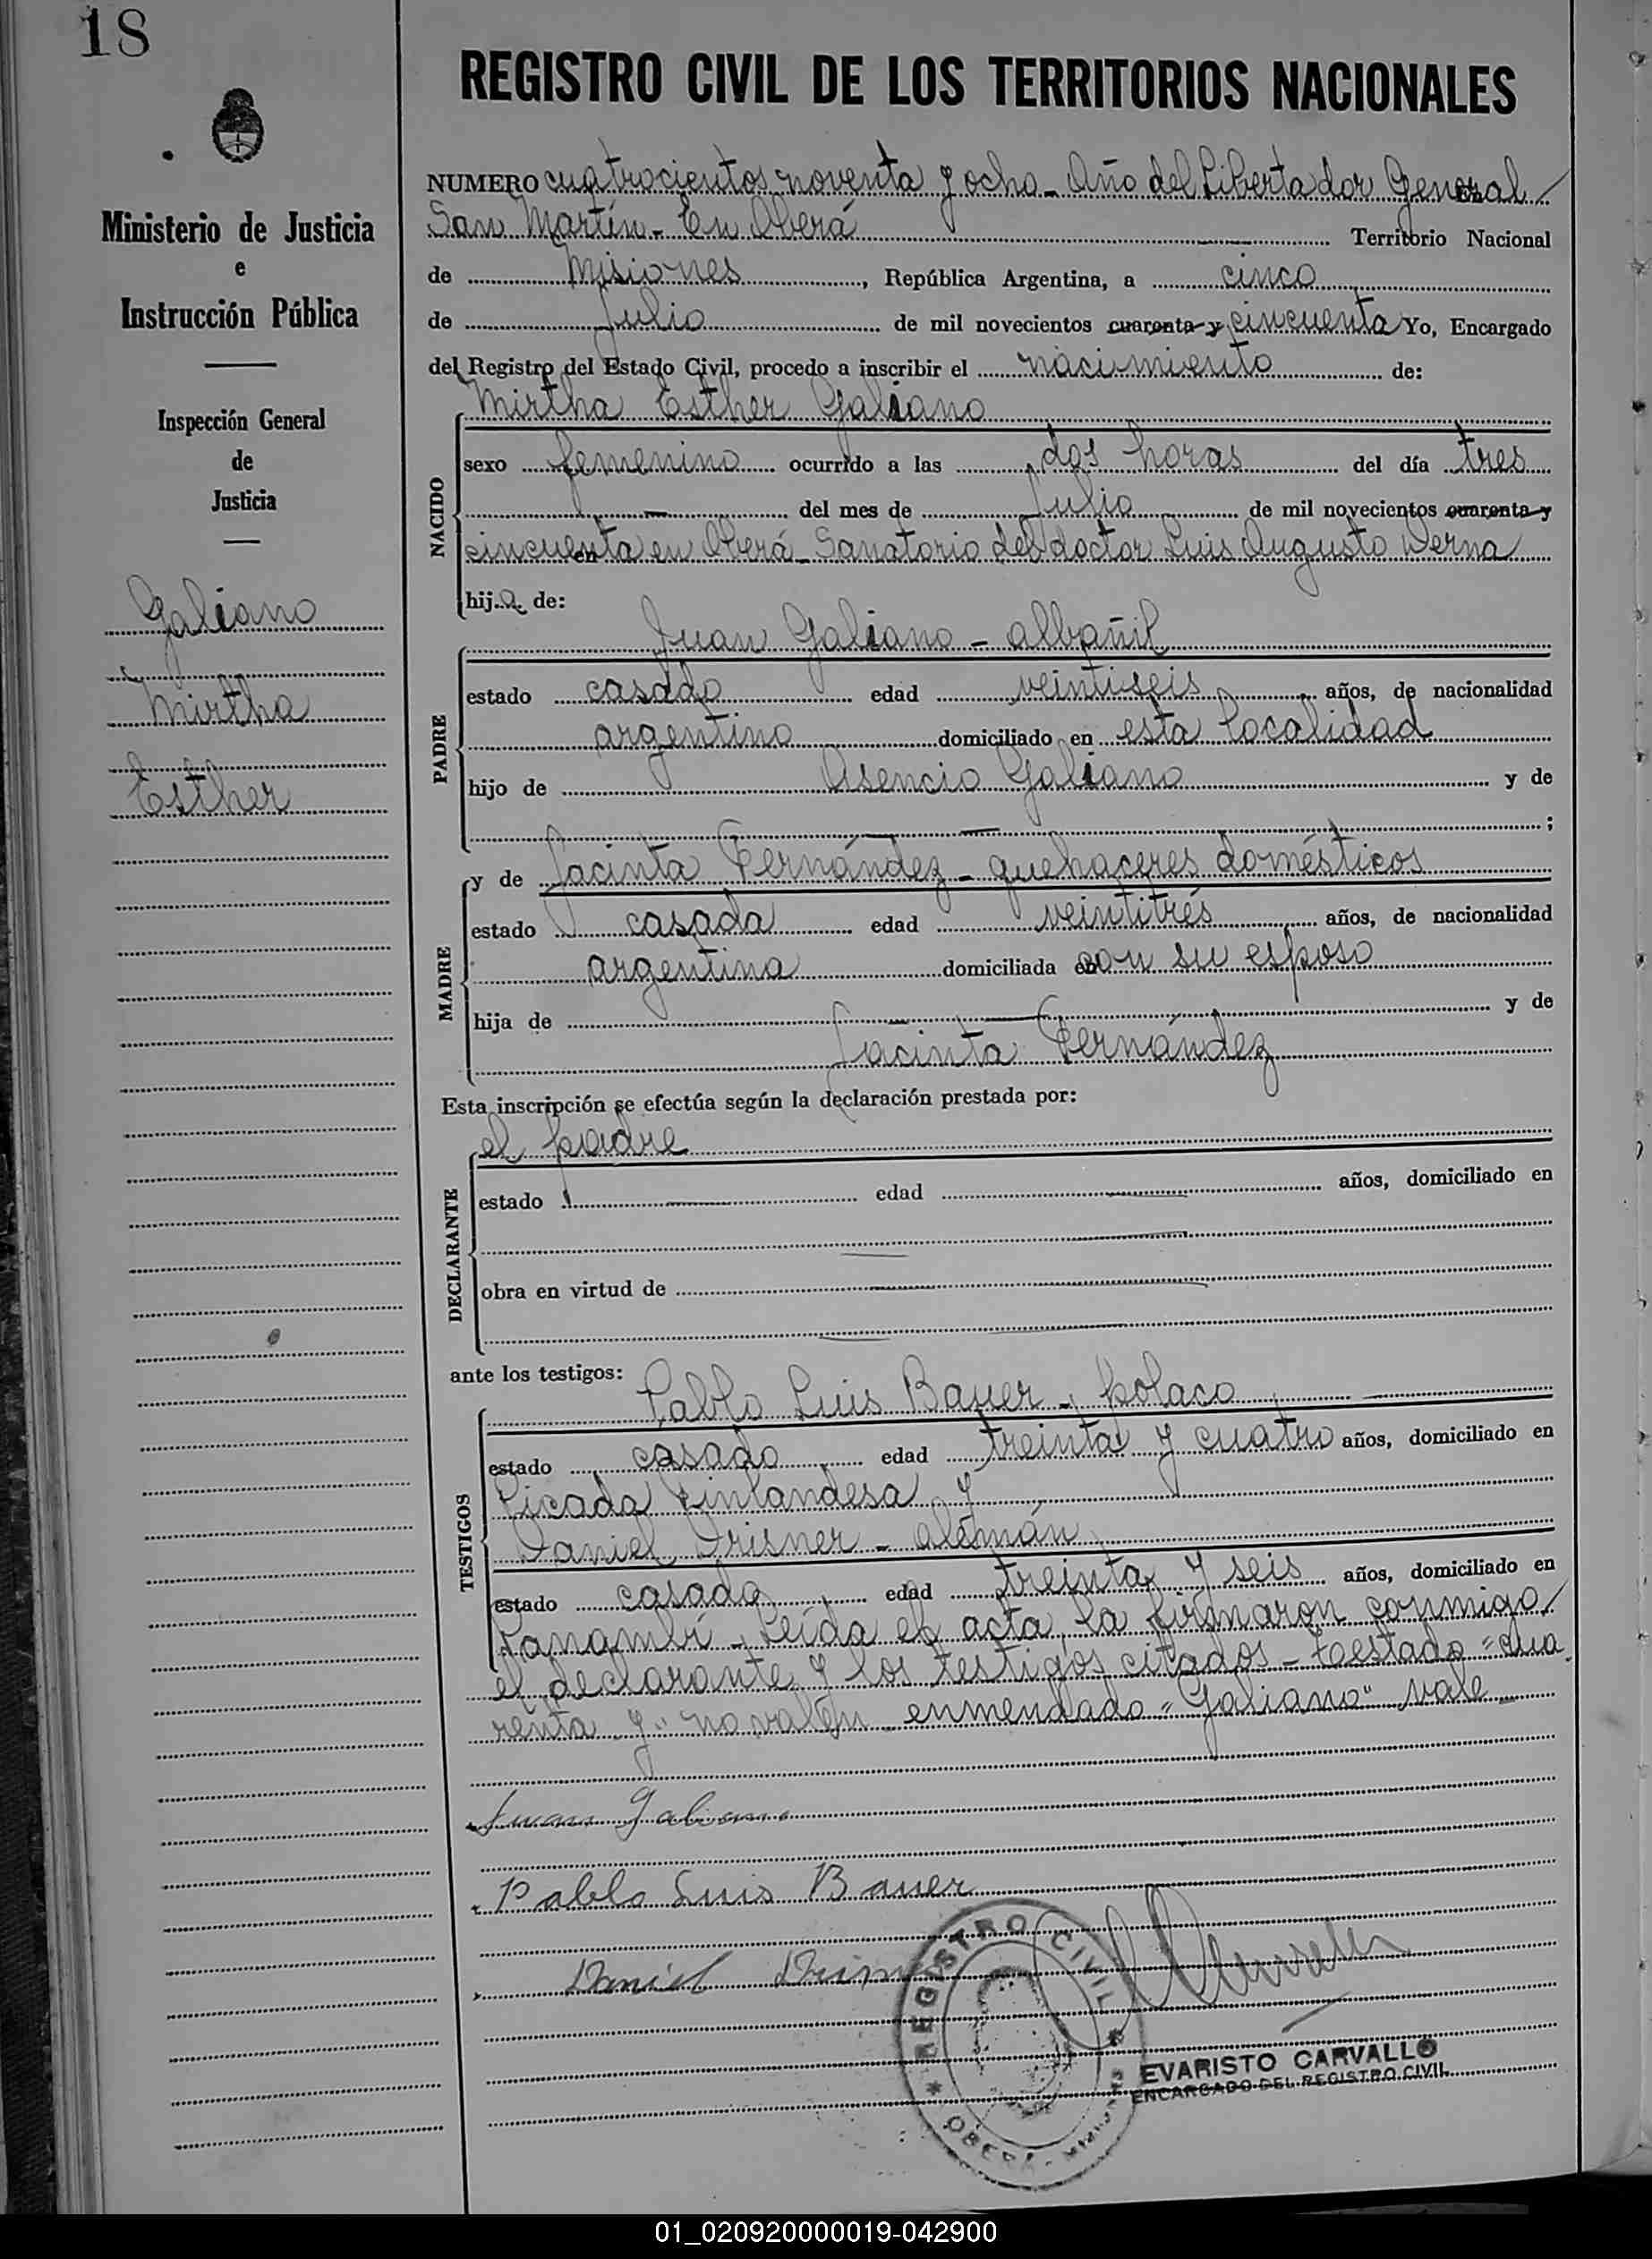 18
REGISTRO CIVIL DE LOS TERRITORIOS NACIONALES
Ministerio de Justicia
e
Instrucción Pública
Inspección General
de
Justicia
Galiano
Mirtha
Esther
NUMERO cuatrocientos noventa y ocho - Año del Libertador General
San Martín - En Oberá Territorio Nacional
de Misiones, República Argentina, a cinco
de Julio de mil novecientos cuarenta y cincuenta Yo, Encargado
del Registro del Estado Civil, procedo a inscribir el nacimiento de:
Mirtha Esther Galiano
NACIDO
sexo femenino ocurrido a las dos horas del día tres
— del mes de Julio de mil novecientos cuarenta y
cincuenta en Oberá - Sanatorio del doctor Luis Augusto Derna
hija de:
Juan Galiano - albañil
PADRE
estado casado edad veintiseis años, de nacionalidad
argentino domiciliado en esta localidad
hijo de Asencio Galiano y de
— ;
y de Jacinta Fernández - quehaceres domésticos
MADRE
estado casada edad veintitrés años, de nacionalidad
argentina domiciliada con su esposo
hija de — y de
Jacinta Fernández
Esta inscripción se efectúa según la declaración prestada por:
el padre
DECLARANTE
estado — edad — años, domiciliado en
—
obra en virtud de —
—
ante los testigos:
Pablo Luis Bauer - polaco
TESTIGOS
estado casado edad treinta y cuatro años, domiciliado en
Picada Finlandesa y
Daniel Drisner - alemán
estado casado edad treinta y seis años, domiciliado en
Panambí - Leída el acta, la firmaron conmigo
el declarante y los testigos citados - testado "cua
renta y" no valen - enmendado "Galiano" vale
Juan Galiano
Pablo Luis Bauer
Daniel
REGISTRO CIVIL
OBERÁ - MISIONES
EVARISTO CARVALLO
ENCARGADO DEL REGISTRO CIVIL
01_020920000019-042900